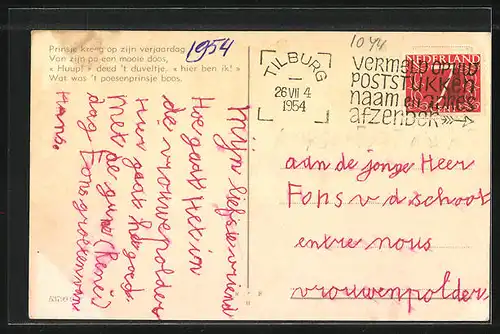 Prinsje kreeg op zijn verjaardag
Van zijn pa een mooie doos,
« Huup! » deed 't duveltje, « hier ben ik! »
Wat was 't poesenprinsje boos.
1954
1044
TILBURG
26 VII 4
1954
vermeld op uw
POSTSTUKKEN
naam en adres
afzender
NEDERLAND
Mijn liefste vriend
Hoe gaat Het in
die vrouwepolder
Hier gaat het goed
Met de (René)
dag Fons groeten van
Hans.
aan de jonge Heer
Fons v d schoot
entre nous
vrouwenpolder